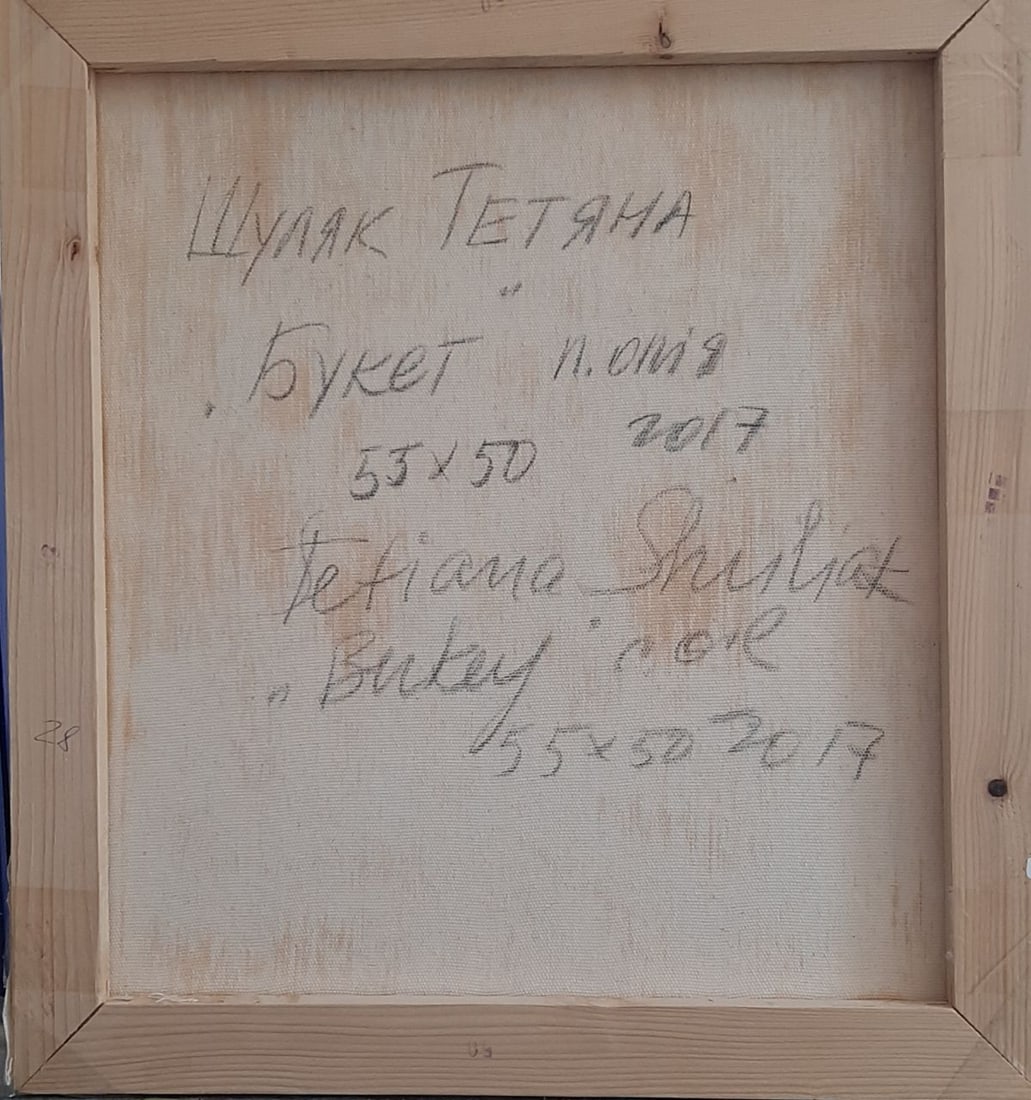 Шуляк Тетяна
„Букет" п. олія
55x50 2017
Tetiana Shuliak
„Bukey" oil
55x50 2017
28